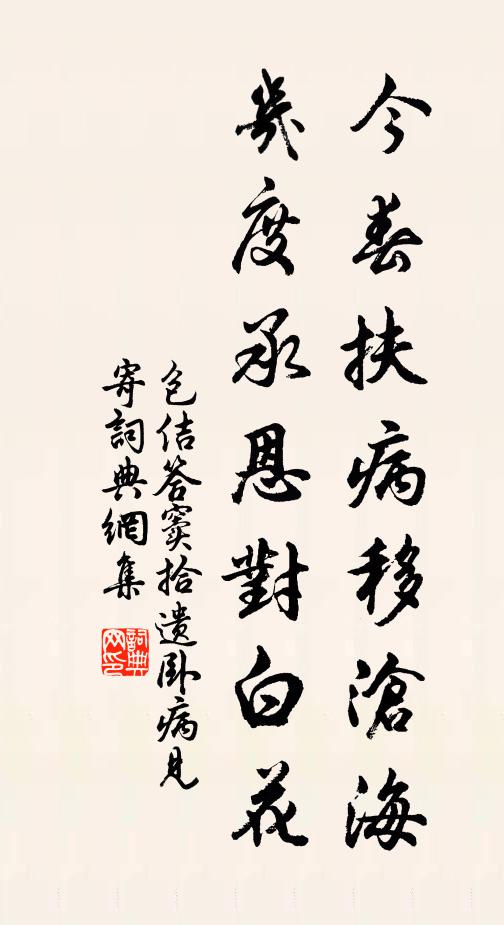 今春扶病移滄海
幾度承恩對白花
包佶答竇拾遺臥病見
寄詞典網集
詞典網印